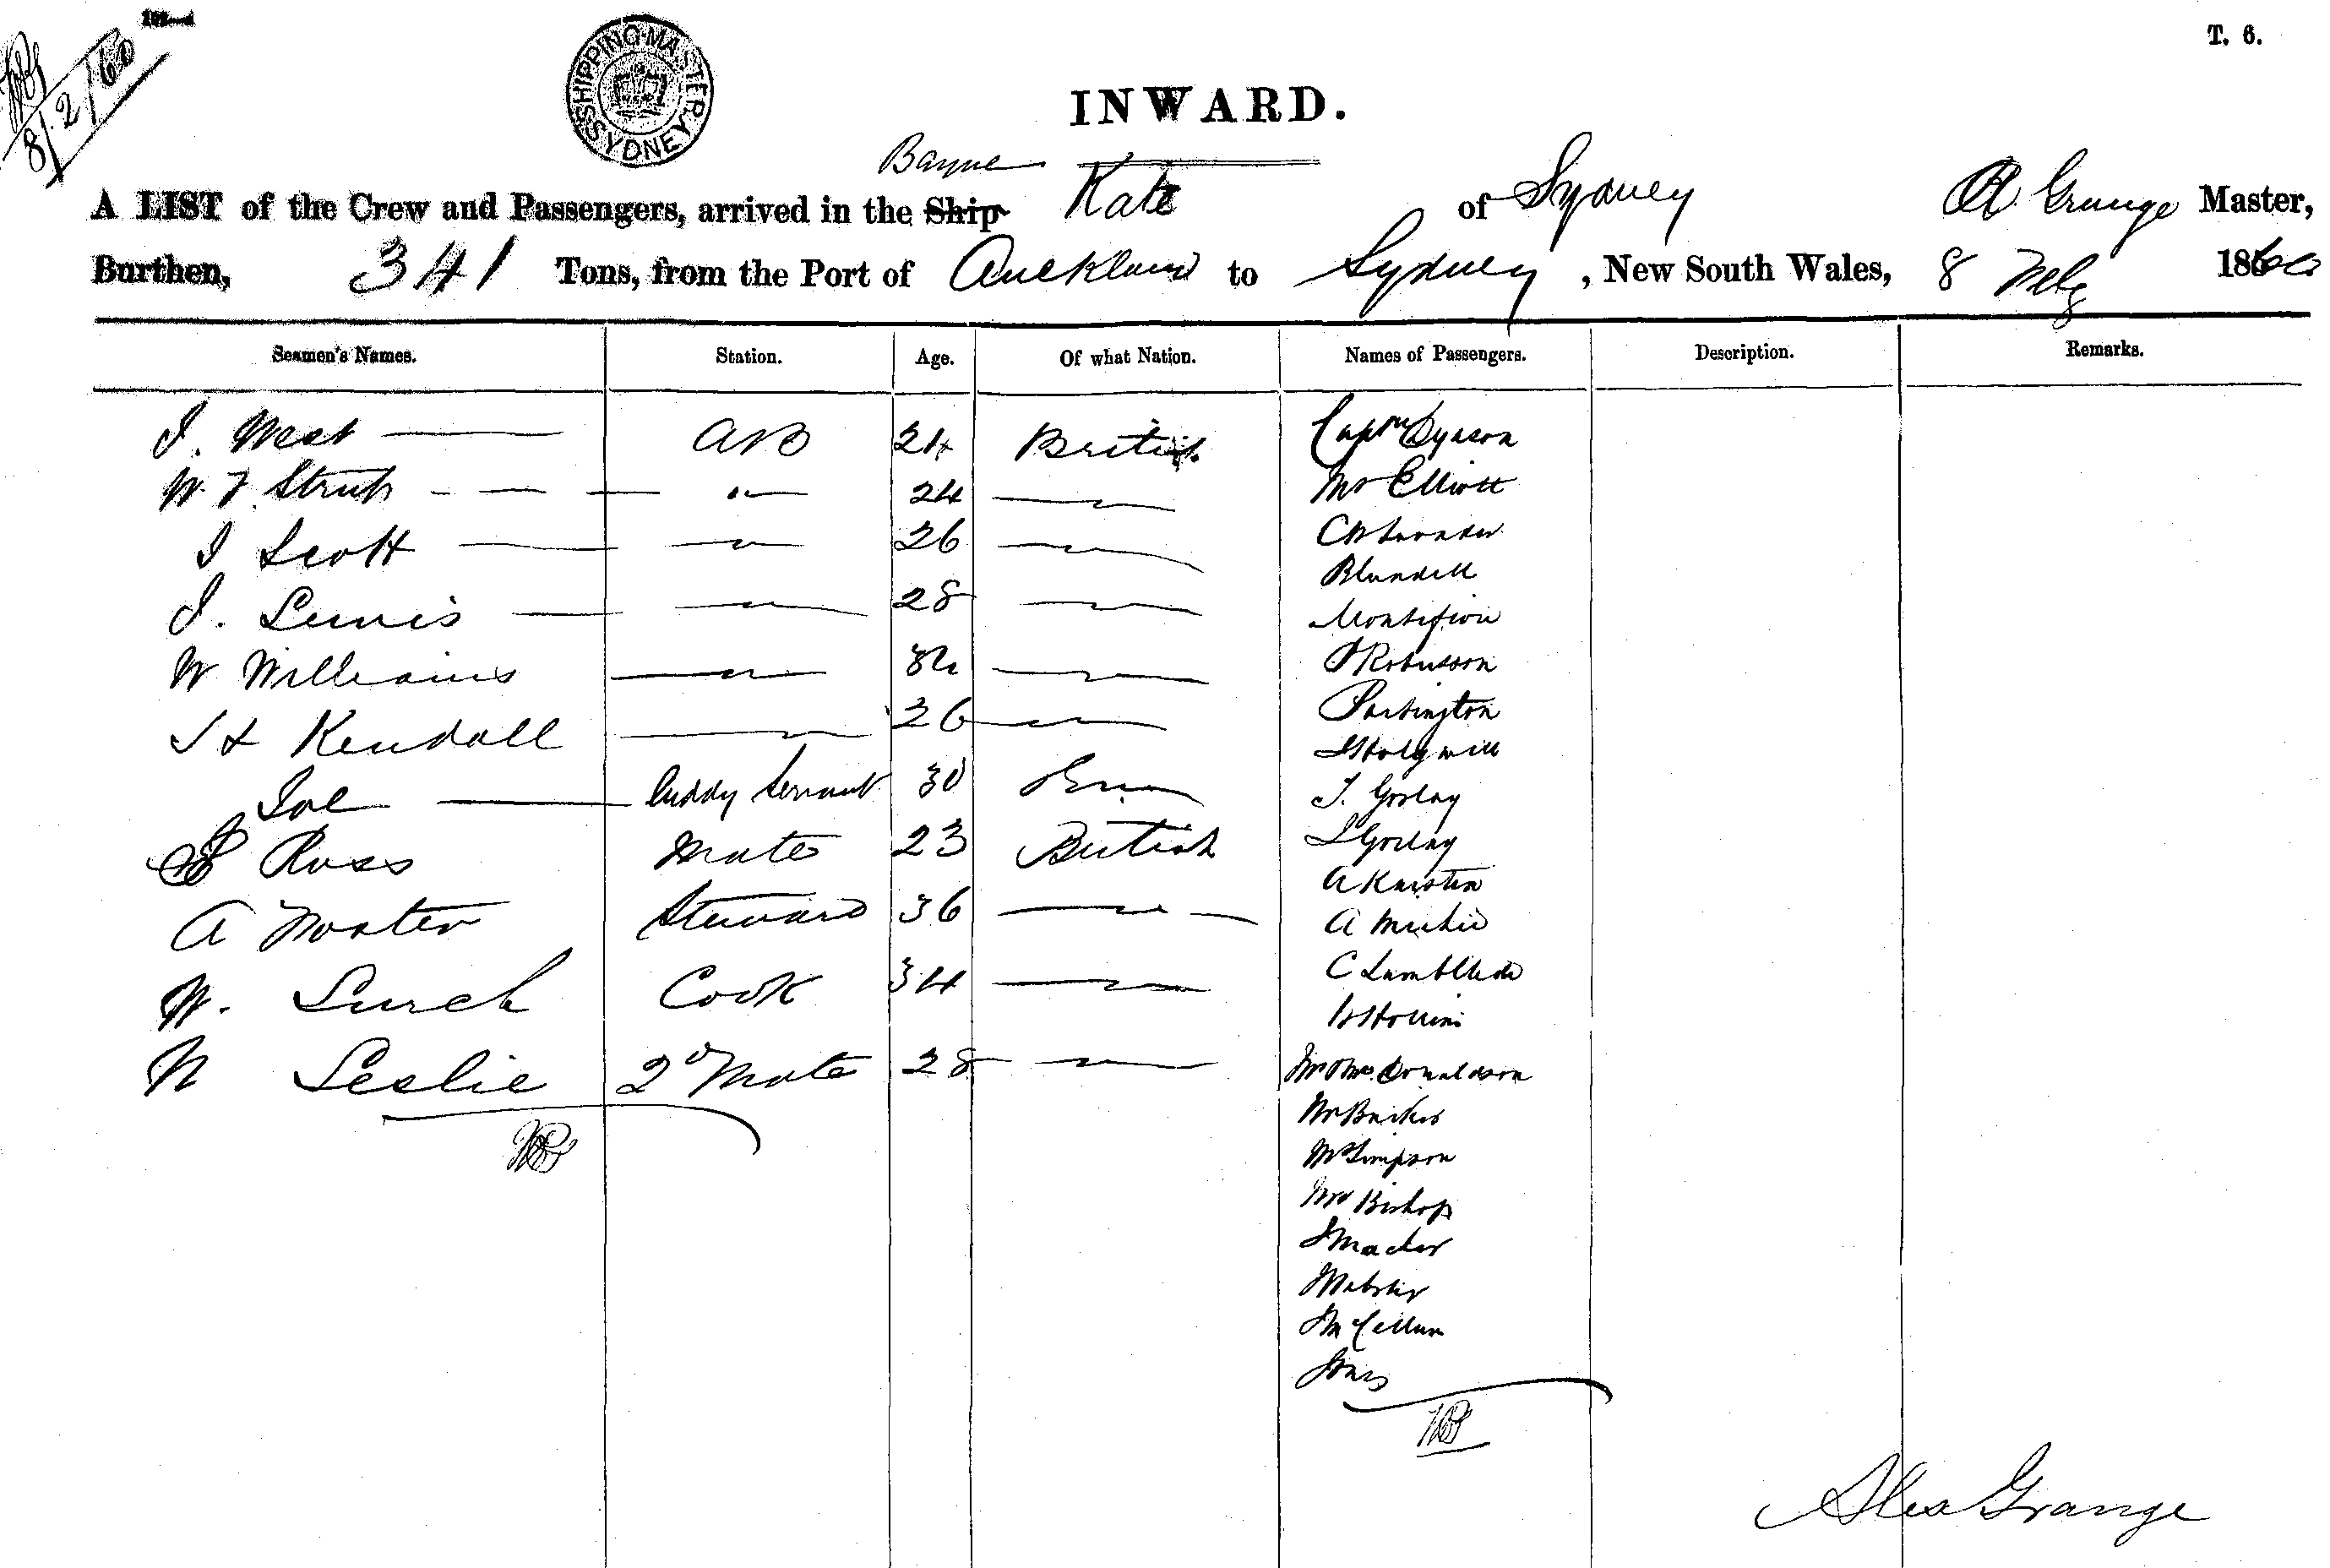 8/2/60
T. 6.
SHIPPING MASTER SYDNEY
INWARD.
Barque
A LIST of the Crew and Passengers, arrived in the Ship Kate of Sydney A Grange Master,
Burthen, 341 Tons, from the Port of Auckland to Sydney, New South Wales, 8 Feby 1860
Seamen's Names. Station. Age. Of what Nation. Names of Passengers. Description. Remarks.
J. West AB 24 British
W. F. 24
J Scott 26
J. Lewis 28
W Williams
Kendall 26
Joe Cuddy Servant 30
Ross Mate 23 British
A Steward 36
W. Cook 34
N Leslie 2d Mate 28
Captn Dyason
Mr Elliott
Blundell
Montifiore
Robinson
Partington
J Holywill
T. Gorlay
J Gorlay
A Karsten
A Michie
C
Mr & Mrs Donaldson
Mr Barker
Mr Simpson
Mr Bishop
Webster
McCallum
Jones
Alex Grange